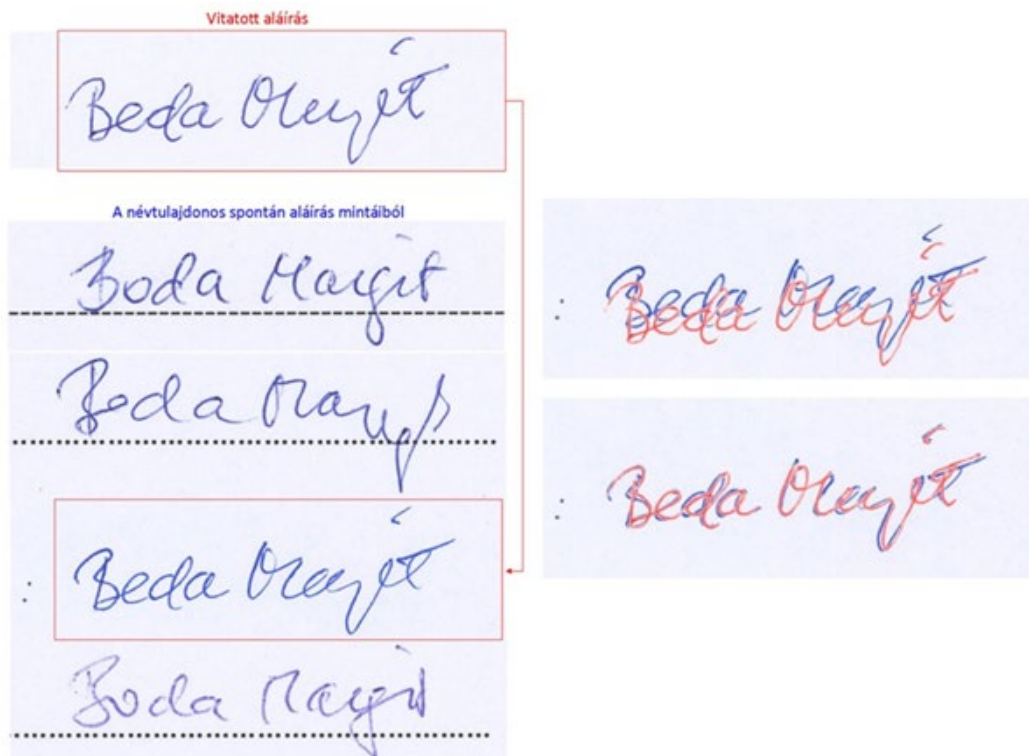 Vitatott aláírás
Beda Margit
A névtulajdonos spontán aláírás mintáiból
Boda Margit
Boda Margit
Beda Margit
Boda Margit
Beda Margit
Beda Margit